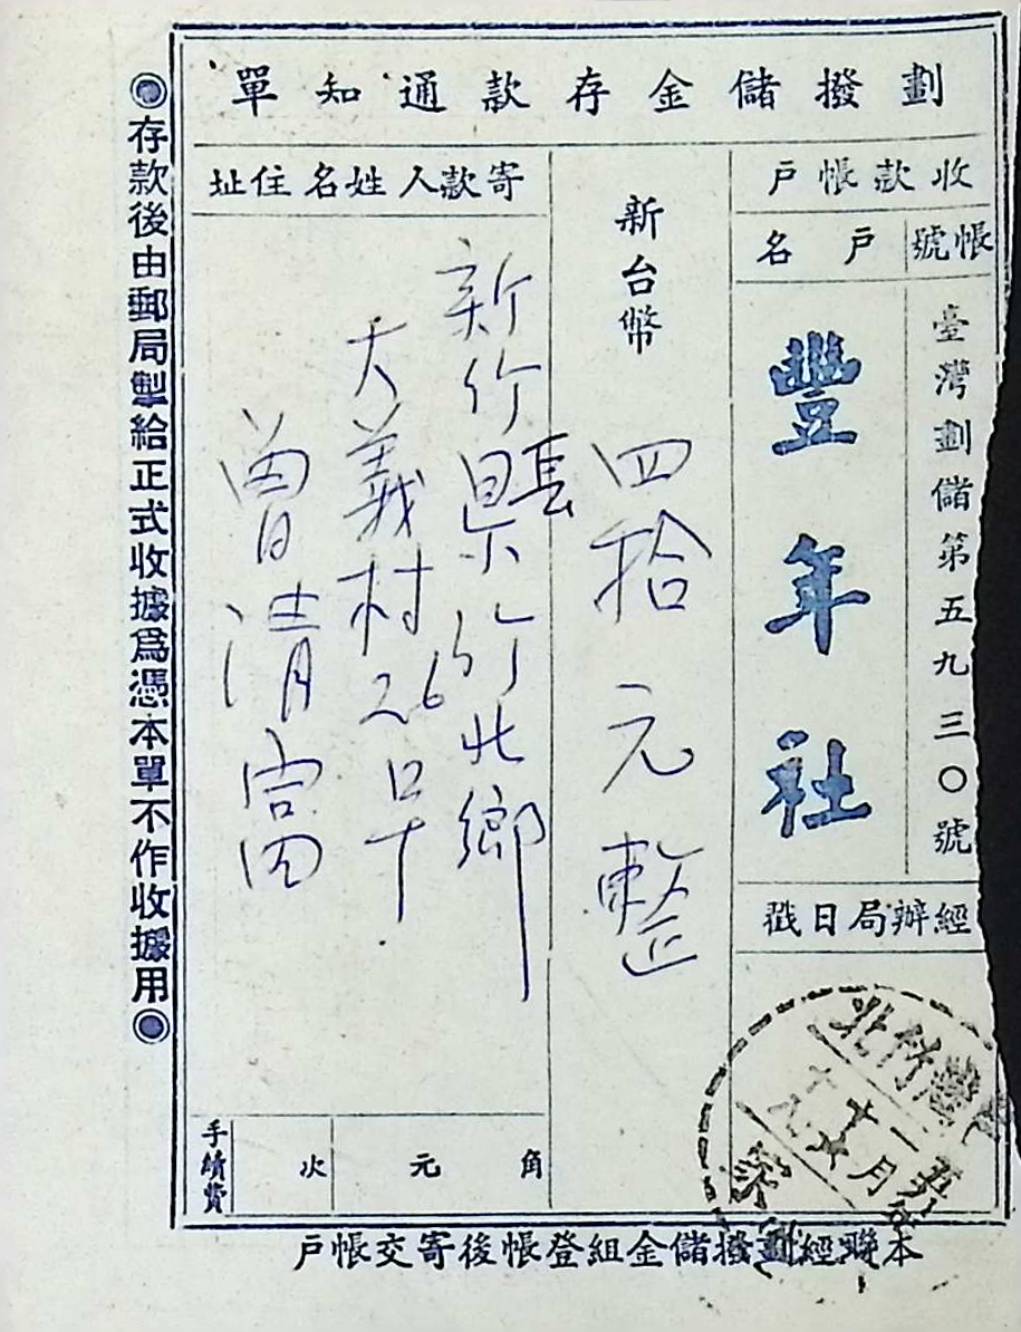 劃撥儲金存款通知單
收款帳戶
帳號
戶名
臺灣劃儲第五九三〇號
豐年社
經辦局日戳
新台幣
四拾元整
寄款人姓名住址
新竹縣竹北鄉
大義村26号
曾清富
手續費
次
元
角
臺灣竹北
本聯經劃撥儲金組登帳後寄交帳戶
◎存款後由郵局掣給正式收據爲憑本單不作收據用◎